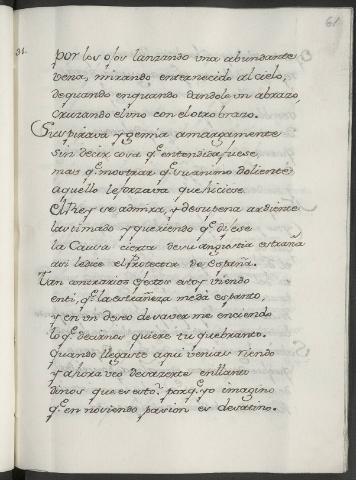 61
31.
por los ojos lanzando una abundante
vena, mirando enternecido al cielo,
de quando en quando dandole un abrazo,
Cruzando el uno con el otro brazo.
Suspirava y gemia amargamente
sin decir cosa q.e entendida fuese
mas q.e mostrar q.e su animo doliente
aquello le forzava que hiciese
el Rey se admira, y de su pena ardiente
lastimado y queriendo q.e dijese
la Causa cierta de su angustia estraña
asi le dice el protector de España.
Tan contrarios efectos estoy viendo
en ti, q.e la estrañeza me da espanto,
y en un deseo de saver me enciendo
lo q.e decirnos quiere tu quebranto.
quando llegaste aqui venias riendo
y ahora veo deshacerte en llanto
dinos que es esto? porq.e yo imagino
q.e en no siendo pasion es desatino.